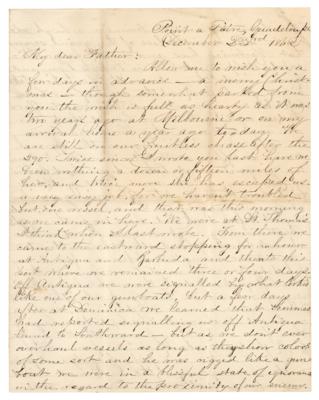 Point a Pitre, Guadeloupe
December 23rd 1862
My dear Father:
Allow me to wish you a
few days in advance — a merry Christ-
mas — though somewhat parted from
you the wish is full as hearty as it was
two years ago at Melbourne or on my
arrival home a year ago today. We
are still on our fruitless chase after the
290. Twice since I wrote you last have we
been within a dozen or fifteen miles of
her, and twice more she has escaped us
a very easy job for we haven't troubled
but one vessel, and that was this morning
as we came in here. We were at St. Thomas
I think when I last wrote. From there we
came to the eastward stopping for an hour
at Antigua and Barbuda and thence this
port where we remained three or four days.
Off Antigua we were signalled by what looked
like one of our gunboats, but a few days
after at Dominica we learned that
had reported signalling us off Antigua
bound to Southward — but as we don't ever
overhaul vessels as long as they show colors
of some sort and he was rigged like a gun
boat we were in a blissful state of ignorance
in the regard to the proximity of our enemy.